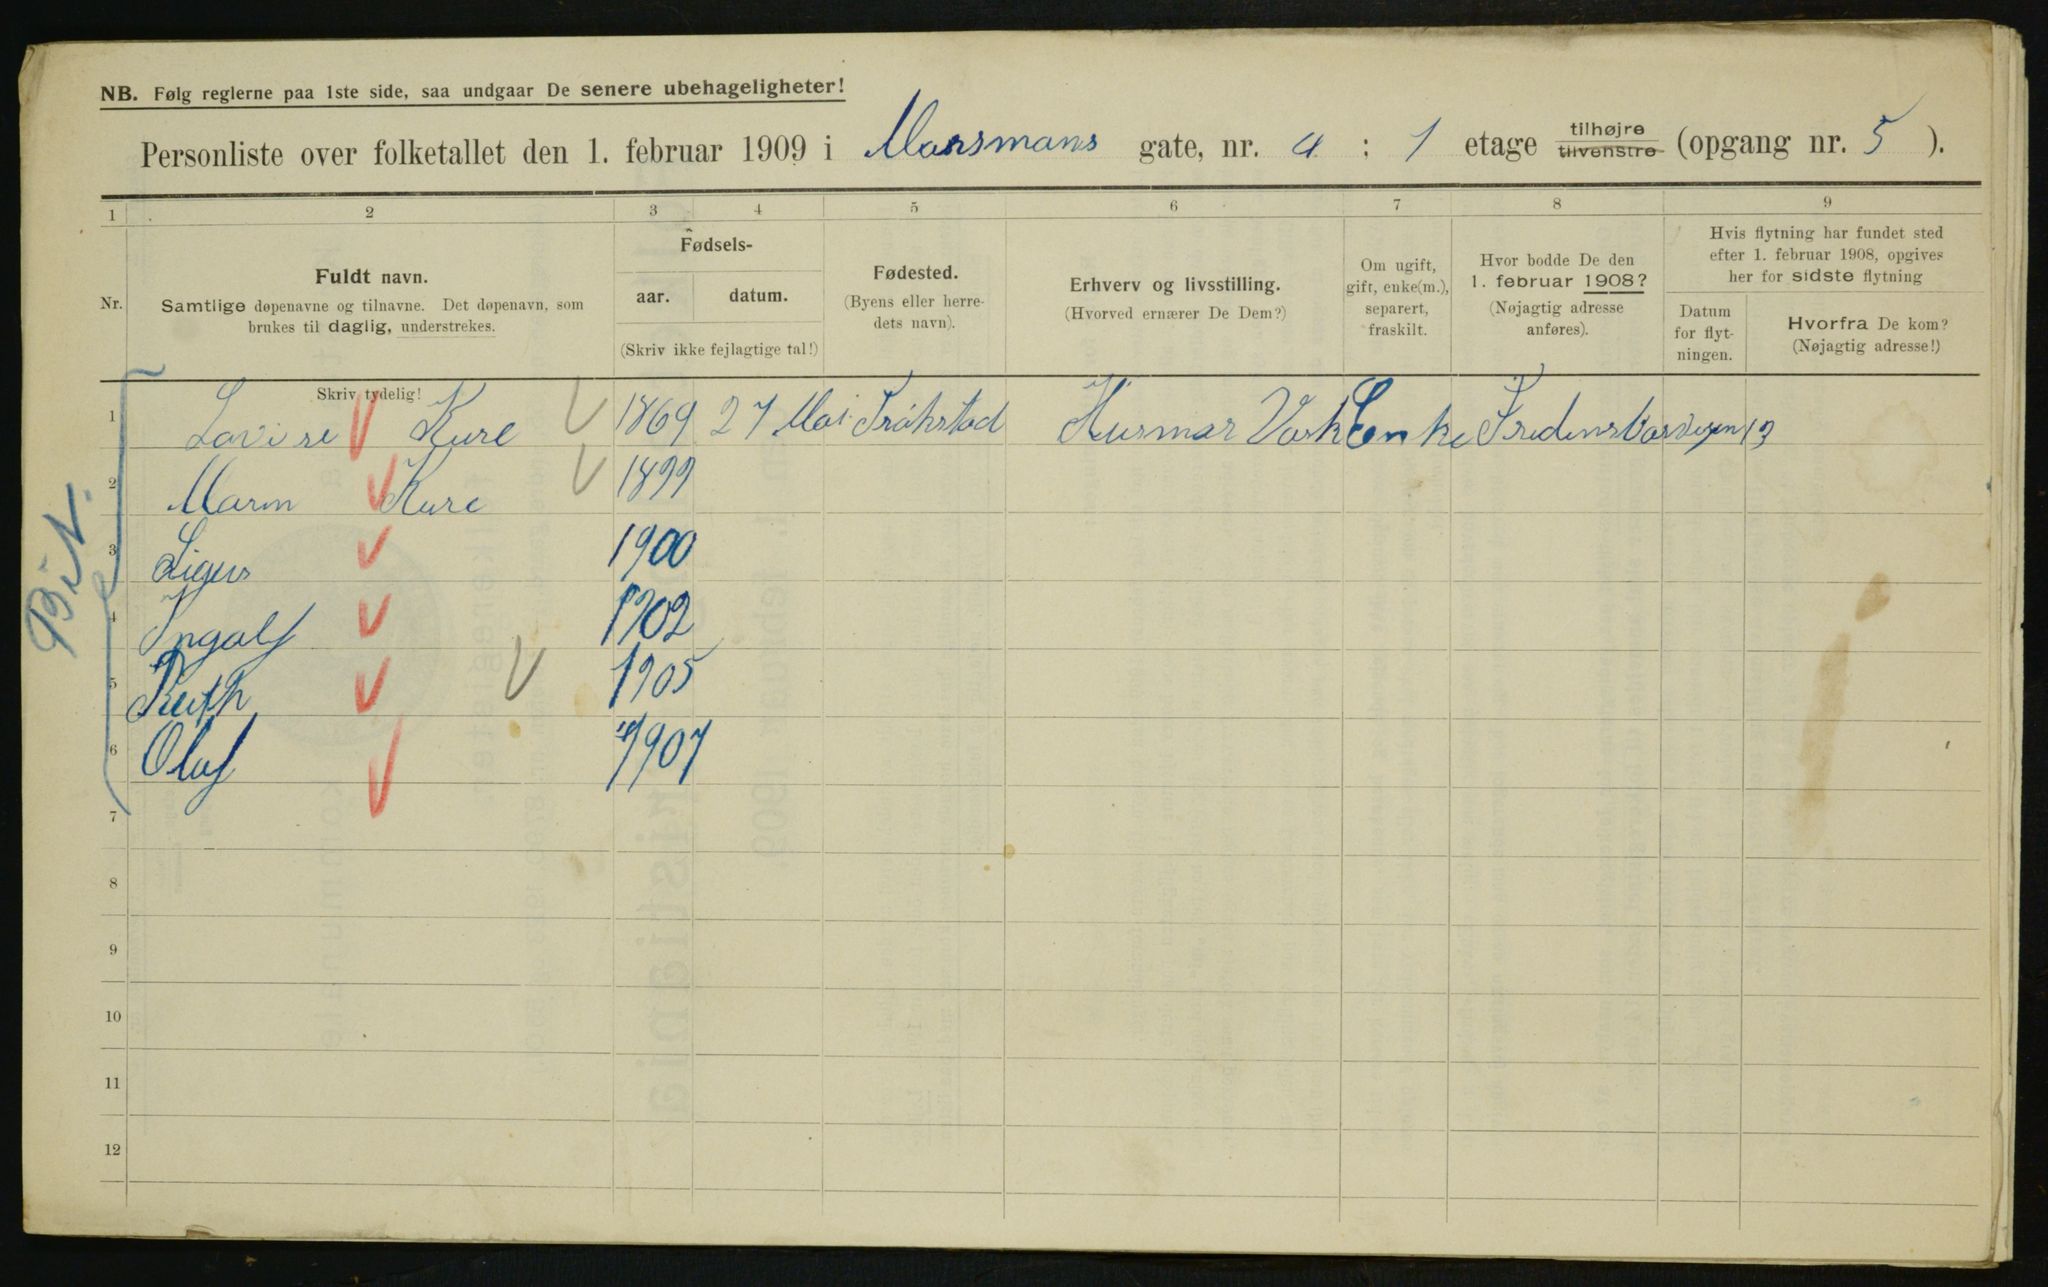 NB. Følg reglerne paa 1ste side, saa undgaar De senere ubehageligheter!
Personliste over folketallet den 1. februar 1909 i Marsmans gate, nr. a : 1 etage tilhøjre tilvenstre (opgang nr. 5 ).
1 2 3 4 5 6 7 8 9
Nr.
Fuldt navn.
Samtlige døpenavne og tilnavne. Det døpenavn, som
brukes til daglig, understrekes.
Fødsels-
aar. datum.
(Skriv ikke fejlagtige tal!)
Fødested.
(Byens eller herre-
dets navn).
Erhverv og livsstilling.
(Hvorved ernærer De Dem?)
Om ugift,
gift, enke(m.),
separert,
fraskilt.
Hvor bodde De den
1. februar 1908?
(Nøjagtig adresse
anføres).
Hvis flytning har fundet sted
efter 1. februar 1908, opgives
her for sidste flytning
Datum
for flyt-
ningen.
Hvorfra De kom?
(Nøjagtig adresse!)
Skriv tydelig!
1 Lovise Kure 1869 27 Mai Enke 13
2 Kure 1899
3 1900
4 Ingolf 1902
5 Ruth 1905
6 Olaf 1907
7
8
9
10
11
12